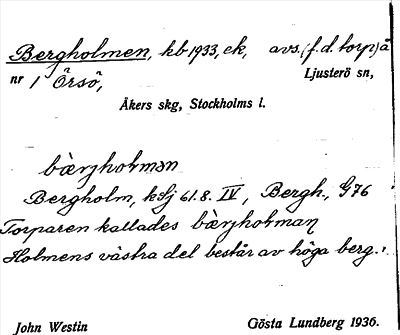 Bergholmen, kb 1933, ek, avs. (f.d. torp) å
nr 1 Örsö, Ljusterö sn,
Åkers skg, Stockholms l.
bærjholmən
Bergholm, kSj 61.8. IV, Bergh., G76
Torparen kallades bærjholman
Holmens västra del består av höga berg.
John Westin Gösta Lundberg 1936.